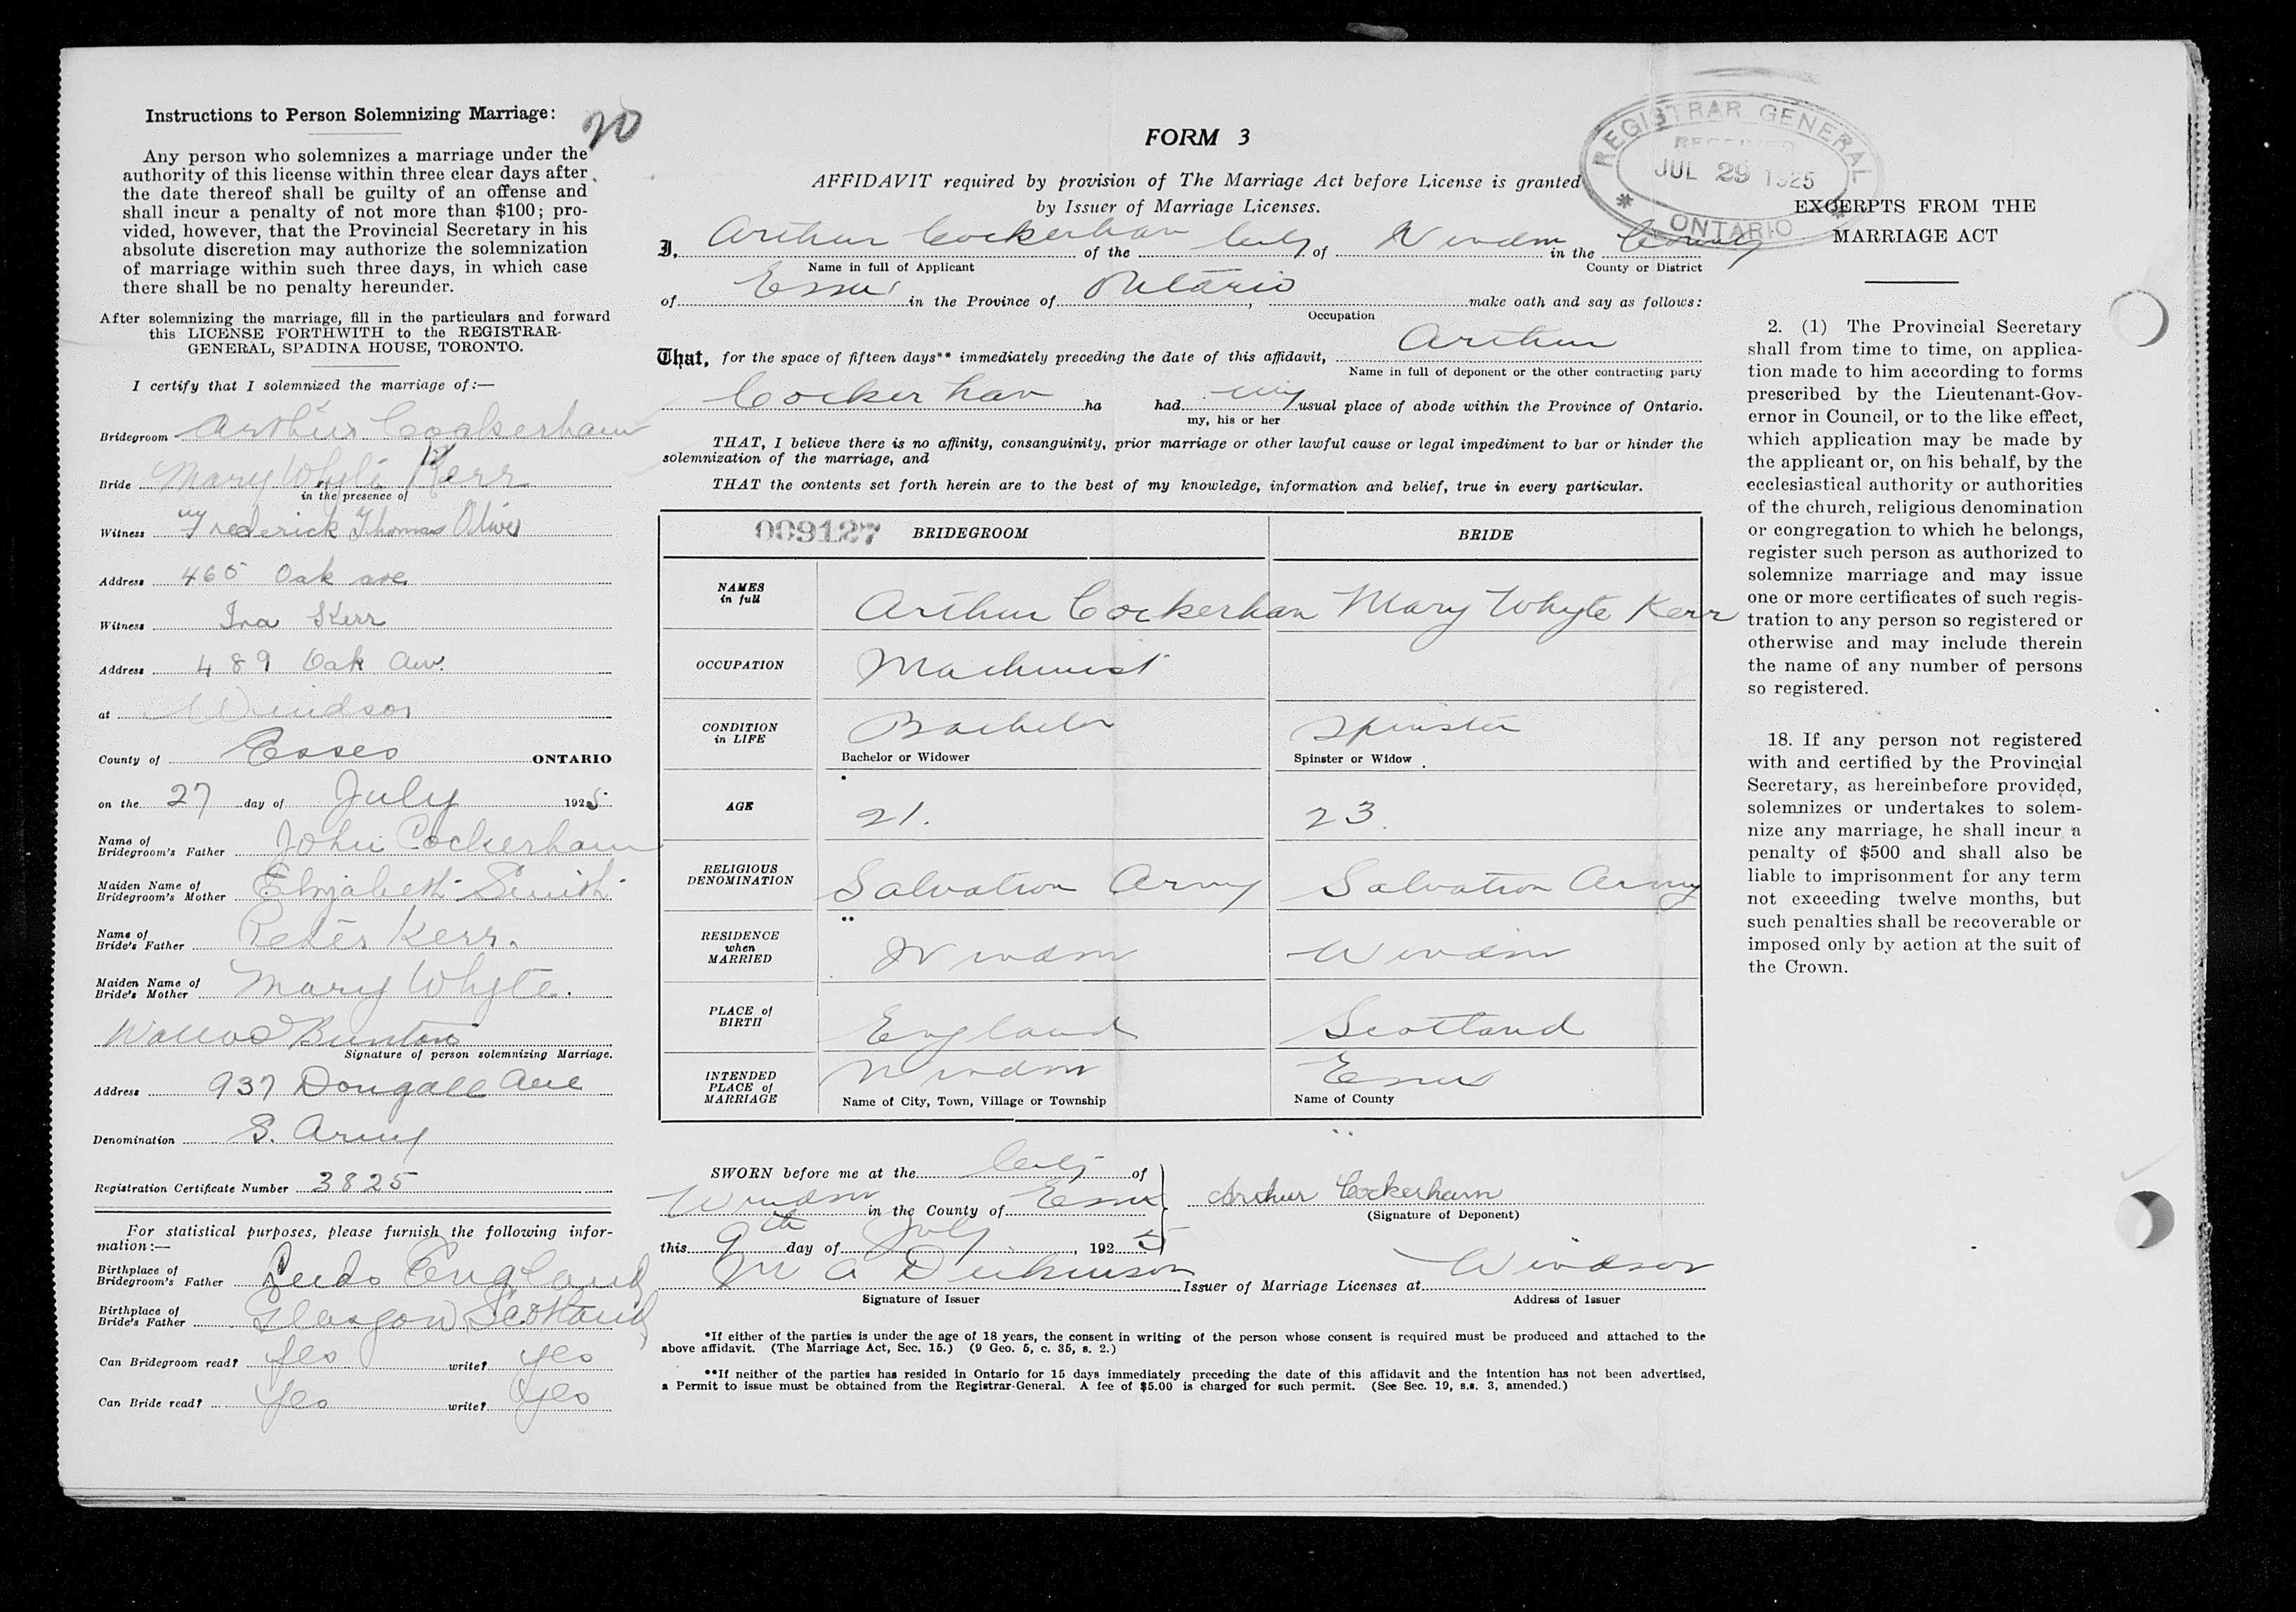 Instructions to Person Solemnizing Marriage:
20
Any person who solemnizes a marriage under the
authority of this license within three clear days after
the date thereof shall be guilty of an offense and
shall incur a penalty of not more than $100; pro-
vided, however, that the Provincial Secretary in his
absolute discretion may authorize the solemnization
of marriage within such three days, in which case
there shall be no penalty hereunder.
After solemnizing the marriage, fill in the particulars and forward
this LICENSE FORTHWITH to the REGISTRAR-
GENERAL, SPADINA HOUSE, TORONTO.
I certify that I solemnized the marriage of:—
Bridegroom Arthur Cockerham
Bride Mary Whyte Kerr
in the presence of
Witness Frederick Thomas Oliver
Address 465 Oak ave
Witness Ina Kerr
Address 489 Oak Ave.
at Windsor
County of Essex ONTARIO
on the 27 day of July 1925
Name of
Bridegroom's Father John Cockerham
Maiden Name of
Bridegroom's Mother Elizabeth Smith
Name of
Bride's Father Peter Kerr.
Maiden Name of
Bride's Mother Mary Whyte.
Bunton
Signature of person solemnizing Marriage.
Address 937 Dougall Ave
Denomination S. Army
Registration Certificate Number 3825
For statistical purposes, please furnish the following infor-
mation:—
Birthplace of
Bridegroom's Father Leeds England
Birthplace of
Bride's Father Glasgow Scotland
Can Bridegroom read? Yes write? Yes
Can Bride read? Yes write? Yes
FORM 3
REGISTRAR GENERAL
RECEIVED
JUL 29 1925
* ONTARIO *
AFFIDAVIT required by provision of The Marriage Act before License is granted
by Issuer of Marriage Licenses.
I, Arthur Cockerham of the City of Windsor in the County
Name in full of Applicant County or District
of Essex in the Province of Ontario, make oath and say as follows:
Occupation
That, for the space of fifteen days** immediately preceding the date of this affidavit, Arthur
Name in full of deponent or the other contracting party
Cockerham ha had my usual place of abode within the Province of Ontario.
my, his or her
THAT, I believe there is no affinity, consanguinity, prior marriage or other lawful cause or legal impediment to bar or hinder the
solemnization of the marriage, and
THAT the contents set forth herein are to the best of my knowledge, information and belief, true in every particular.
009127 BRIDEGROOM BRIDE
NAMES
in full Arthur Cockerham Mary Whyte Kerr
OCCUPATION Machinist
CONDITION
in LIFE Bachelor Spinster
Bachelor or Widower Spinster or Widow
AGE 21. 23.
RELIGIOUS
DENOMINATION Salvation Army Salvation Army
RESIDENCE
when
MARRIED Windsor Windsor
PLACE of
BIRTH England Scotland
INTENDED
PLACE of
MARRIAGE Windsor Essex
Name of City, Town, Village or Township Name of County
SWORN before me at the City of
Windsor in the County of Essex
Arthur Cockerham
(Signature of Deponent)
this 9th day of July, 1925
M A Dickinson Issuer of Marriage Licenses at Windsor
Signature of Issuer Address of Issuer
*If either of the parties is under the age of 18 years, the consent in writing of the person whose consent is required must be produced and attached to the
above affidavit. (The Marriage Act, Sec. 15.) (9 Geo. 5, c. 35, s. 2.)
**If neither of the parties has resided in Ontario for 15 days immediately preceding the date of this affidavit and the intention has not been advertised,
a Permit to issue must be obtained from the Registrar-General. A fee of $5.00 is charged for such permit. (See Sec. 19, s.s. 3, amended.)
EXCERPTS FROM THE
MARRIAGE ACT
2. (1) The Provincial Secretary
shall from time to time, on applica-
tion made to him according to forms
prescribed by the Lieutenant-Gov-
ernor in Council, or to the like effect,
which application may be made by
the applicant or, on his behalf, by the
ecclesiastical authority or authorities
of the church, religious denomination
or congregation to which he belongs,
register such person as authorized to
solemnize marriage and may issue
one or more certificates of such regis-
tration to any person so registered or
otherwise and may include therein
the name of any number of persons
so registered.
18. If any person not registered
with and certified by the Provincial
Secretary, as hereinbefore provided,
solemnizes or undertakes to solem-
nize any marriage, he shall incur a
penalty of $500 and shall also be
liable to imprisonment for any term
not exceeding twelve months, but
such penalties shall be recoverable or
imposed only by action at the suit of
the Crown.